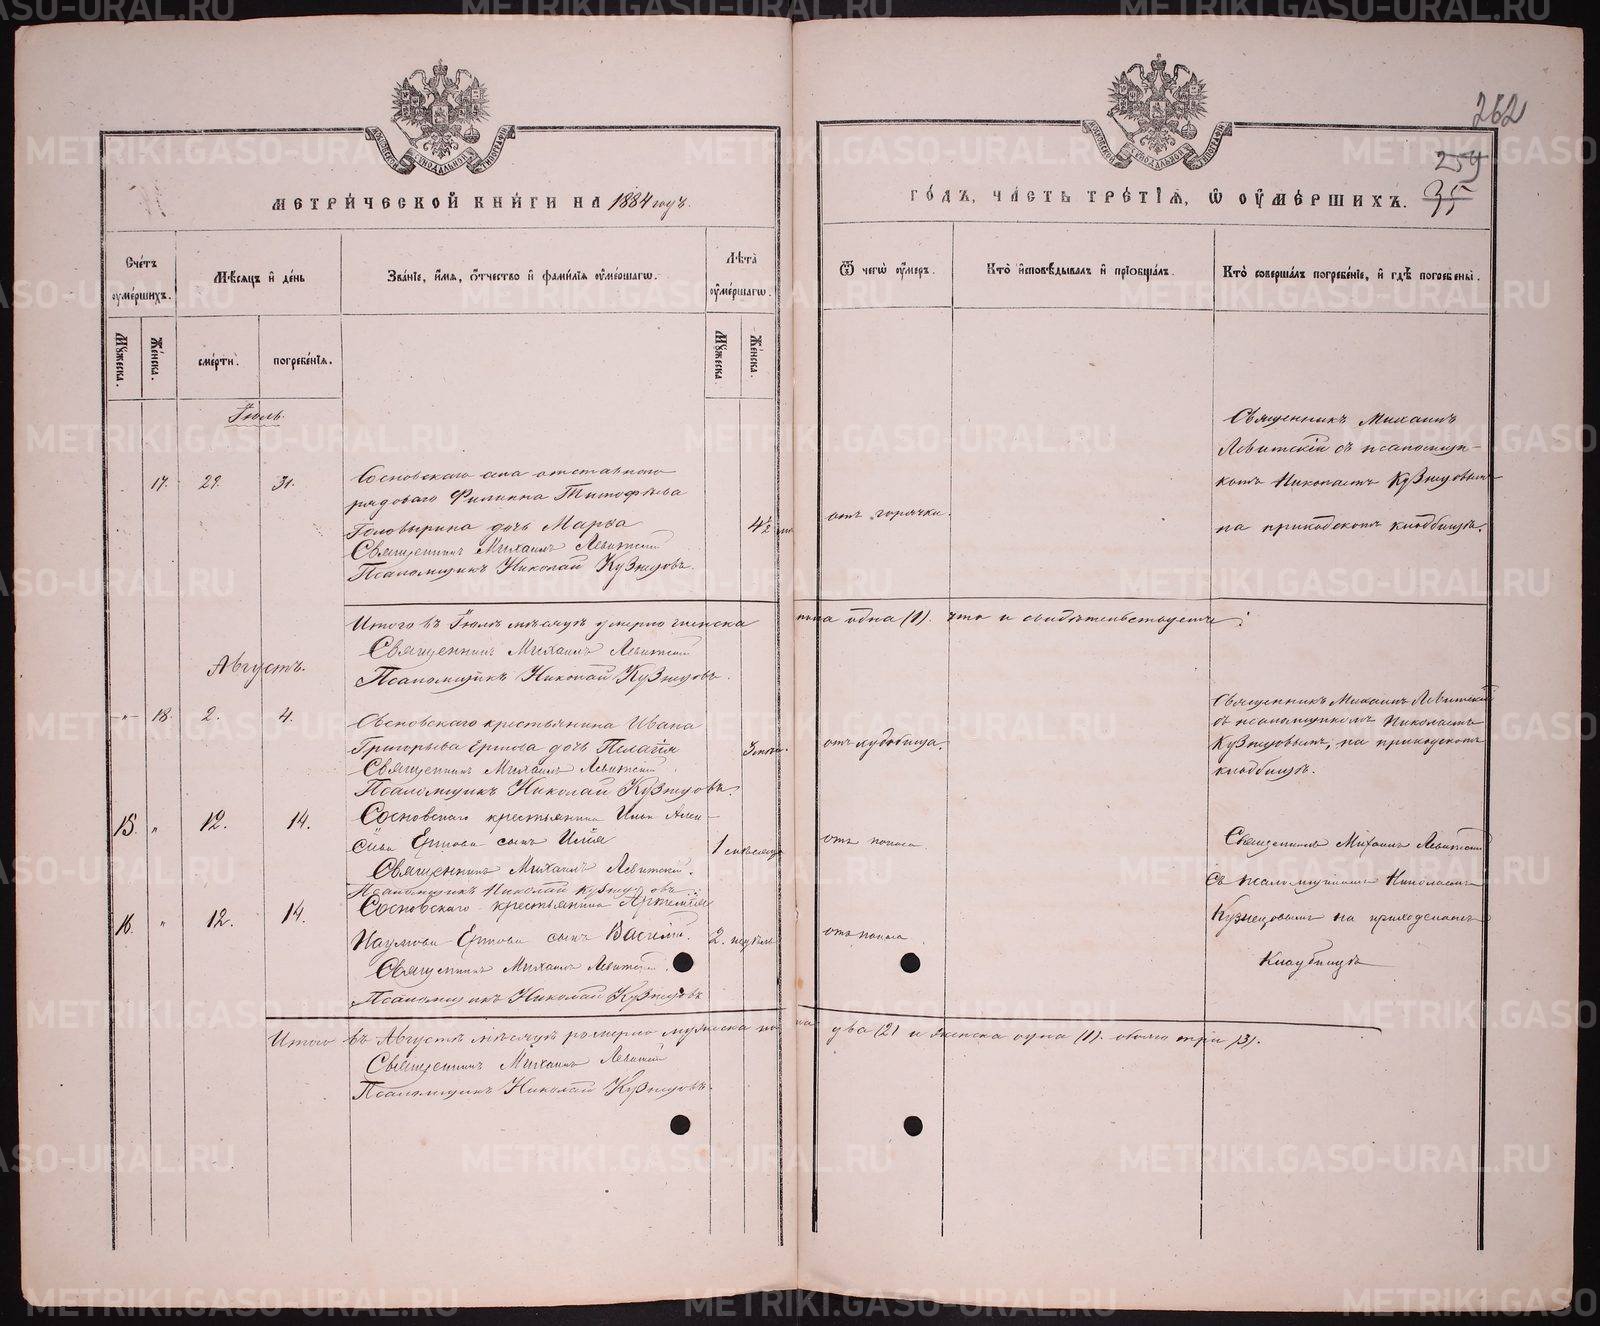 262
259
35
МЕТРИЧЕСКОЙ КНИГИ НА 1884 годъ.
ГОДЪ, ЧАСТЬ ТРЕТІѦ, Ѡ ОУМЕРШИХЪ.
Счетъ оумершихъ.
Мѣсяцъ и день
Званіе, имя, отчество и фамилія оумершагѡ.
Лѣта оумершагѡ.
Ѿ чегѡ оумеръ.
Кто исповѣдывалъ и пріобщалъ.
Кто совершалъ погребеніе, и гдѣ погребены.
Мꙋжеска.
Женска.
смерти.
погребенія.
Мꙋжеска.
Женска.
Іюль.
17. 29. 31.
Сосновскаго села отставного
рядоваго Филиппа Тимофѣева
Головырина дочь Марѳа
4½
отъ горячки.
Священникъ Михаилъ
Левитскій съ псаломщи-
комъ Николаемъ Кузнецовымъ
на приходскомъ кладбищѣ.
Священникъ Михаилъ Левитскій
Псаломщикъ Николай Кузнецовъ.
Итого въ Іюлѣ мѣсяцѣ умерло женска пола одна (1). что и свидѣтельствуемъ:
Священникъ Михаилъ Левитскій
Псаломщикъ Николай Кузнецовъ.
Августъ.
" 18. 2. 4.
Сосновскаго крестьянина Ивана
Григорьева Ершова дочь Пелагія
отъ худобища.
Священникъ Михаилъ Левитскій
съ псаломщикомъ Николаемъ
Кузнецовымъ, на приходскомъ
кладбищѣ.
Священникъ Михаилъ Левитскій
Псаломщикъ Николай Кузнецовъ.
15. " 12. 14.
Сосновскаго крестьянина Ильи Алек-
сѣева Ершова сынъ Илія
1 мѣсяца
отъ поноса
Священникъ Михаилъ Левитскій.
Псаломщикъ Николай Кузнецовъ
16. " 12. 14.
Сосновскаго крестьянина Артемія
Наумова Ершова сынъ Василій.
2. недѣль
отъ поноса
Священникъ Михаилъ Левитскій
Съ псаломщикомъ Николаемъ
Кузнецовымъ на приходскомъ
Кладбищѣ
Священникъ Михаилъ Левитскій.
Псаломщикъ Николай Кузнецовъ
Итого въ Августѣ мѣсяцѣ умерло мужеска пола два (2) и женска одна (1). обоего три (3).
Священникъ Михаилъ Левитскій
Псаломщикъ Николай Кузнецовъ.
METRIKI.GASO-URAL.RU